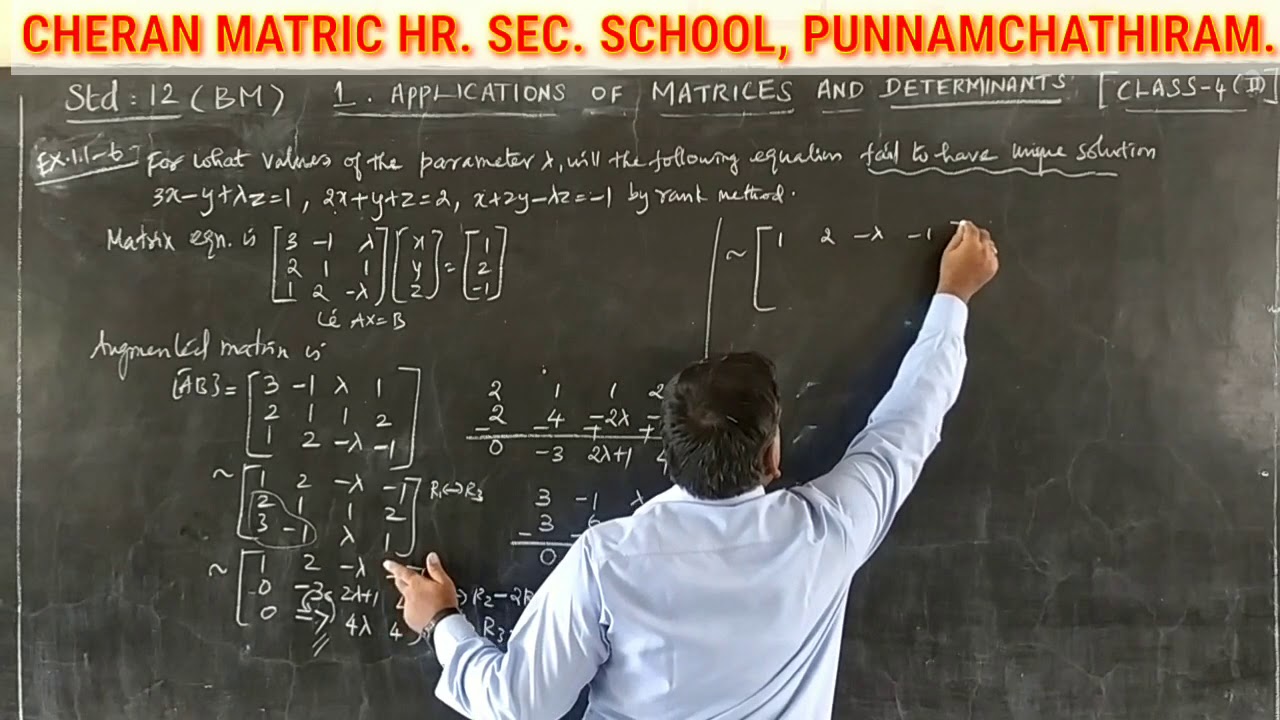 CHERAN MATRIC HR. SEC. SCHOOL, PUNNAMCHATHIRAM.
Std : 12 (BM) 1. APPLICATIONS OF MATRICES AND DETERMINANTS [CLASS-4(D)]
EX.1.1-6 For what values of the parameter λ, will the following equation fail to have unique solution
3x-y+λz=1, 2x+y+z=2, x+2y-λz=-1 by rank method.
Matrix eqn. is [3 -1 λ] [x] = [1]
[2 1 1] [y] [2]
[1 2 -λ] [z] [-1]
ie AX=B
Augmented matrix is
[AB] = [3 -1 λ 1
2 1 1 2
1 2 -λ -1]
~ [1 2 -λ -1
2 1 1 2
3 -1 λ 1] R1↔R3
~ [1 2 -λ
0 -3 2λ+1 4
0 -7 4λ 4]
R2-2R
R3
2 1 1 2
-2 -4 -2λ
+ +
0 -3 2λ+1 4
3 -1 λ
-3 6
0
~ [1 2 -λ -1